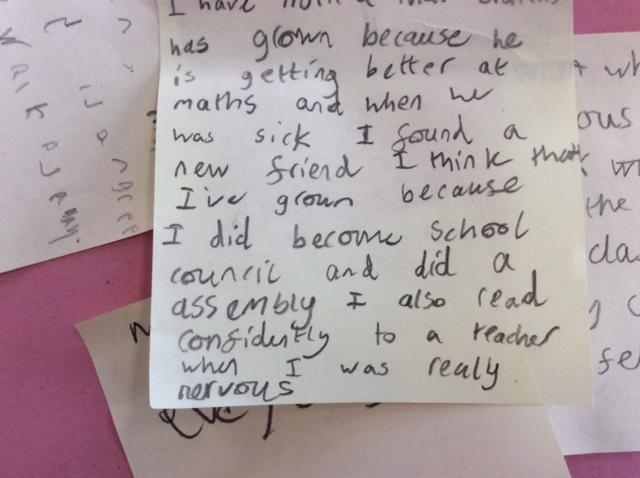 I have
has grown because he
is getting better at
maths and when he
was sick I found a
new friend I think that
I've grown because
I did become school
council and did a
assembly I also read
confidently to a teacher
when I was realy
nervous
is a
wh
ous
the
cla
fe